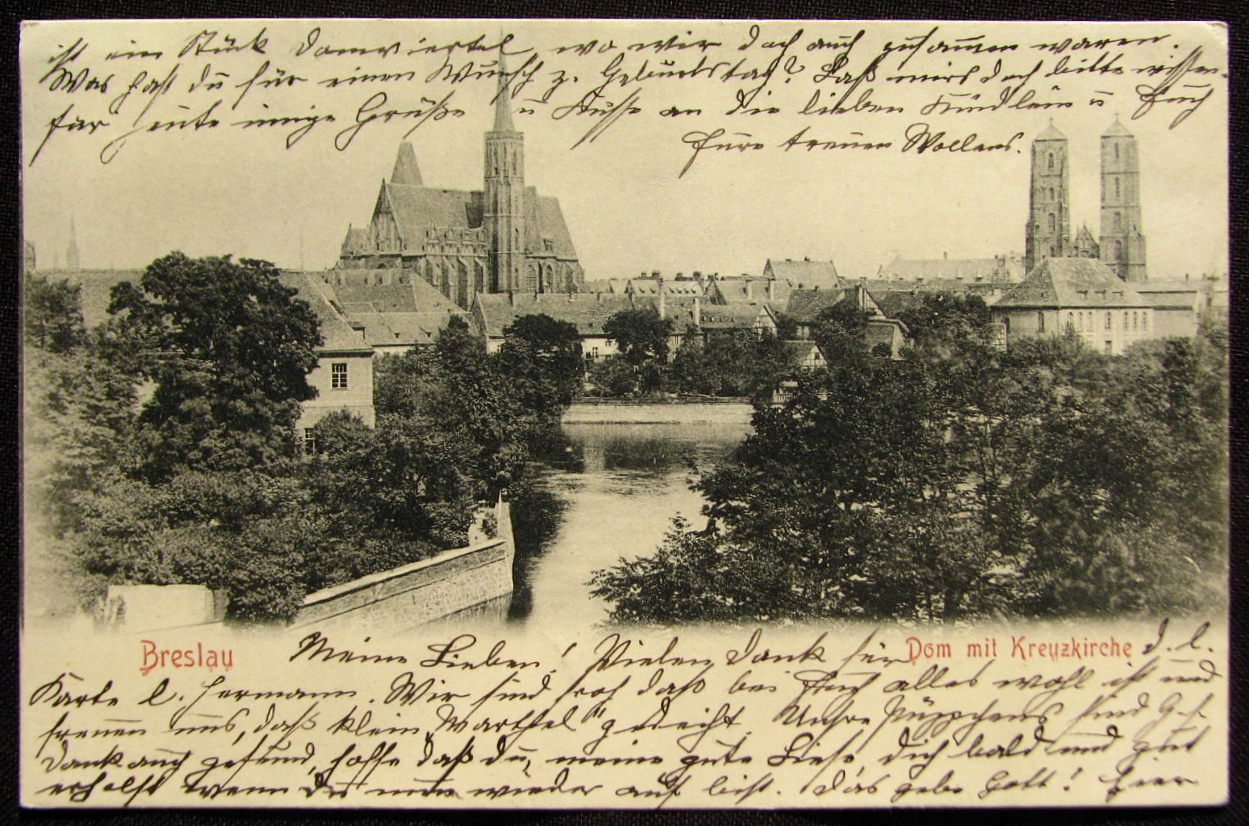 ist ein Stück Domviertel, wo wir doch auch zusammen waren.
Was hast du für einen Wunsch z. Geburtstag? Laß mirs doch bitte wissen.
Für heute innige Grüße u Küsse an die lieben Kindlein u Euch
Eure treuen
Breslau
Dom mit Kreuzkirche
Meine Lieben! Vielen Dank für d. l.
Karte l. Hermann. Wir sind froh daß bei Euch alles wohl ist und
freuen uns, daß klein gedeiht. Unsre Püppchens sind Gott
Dank auch gesund, hoffe daß du, meine gute Liese dich bald und gut
erholst wenn du nur wieder auf bist. Das gebe Gott! Hier